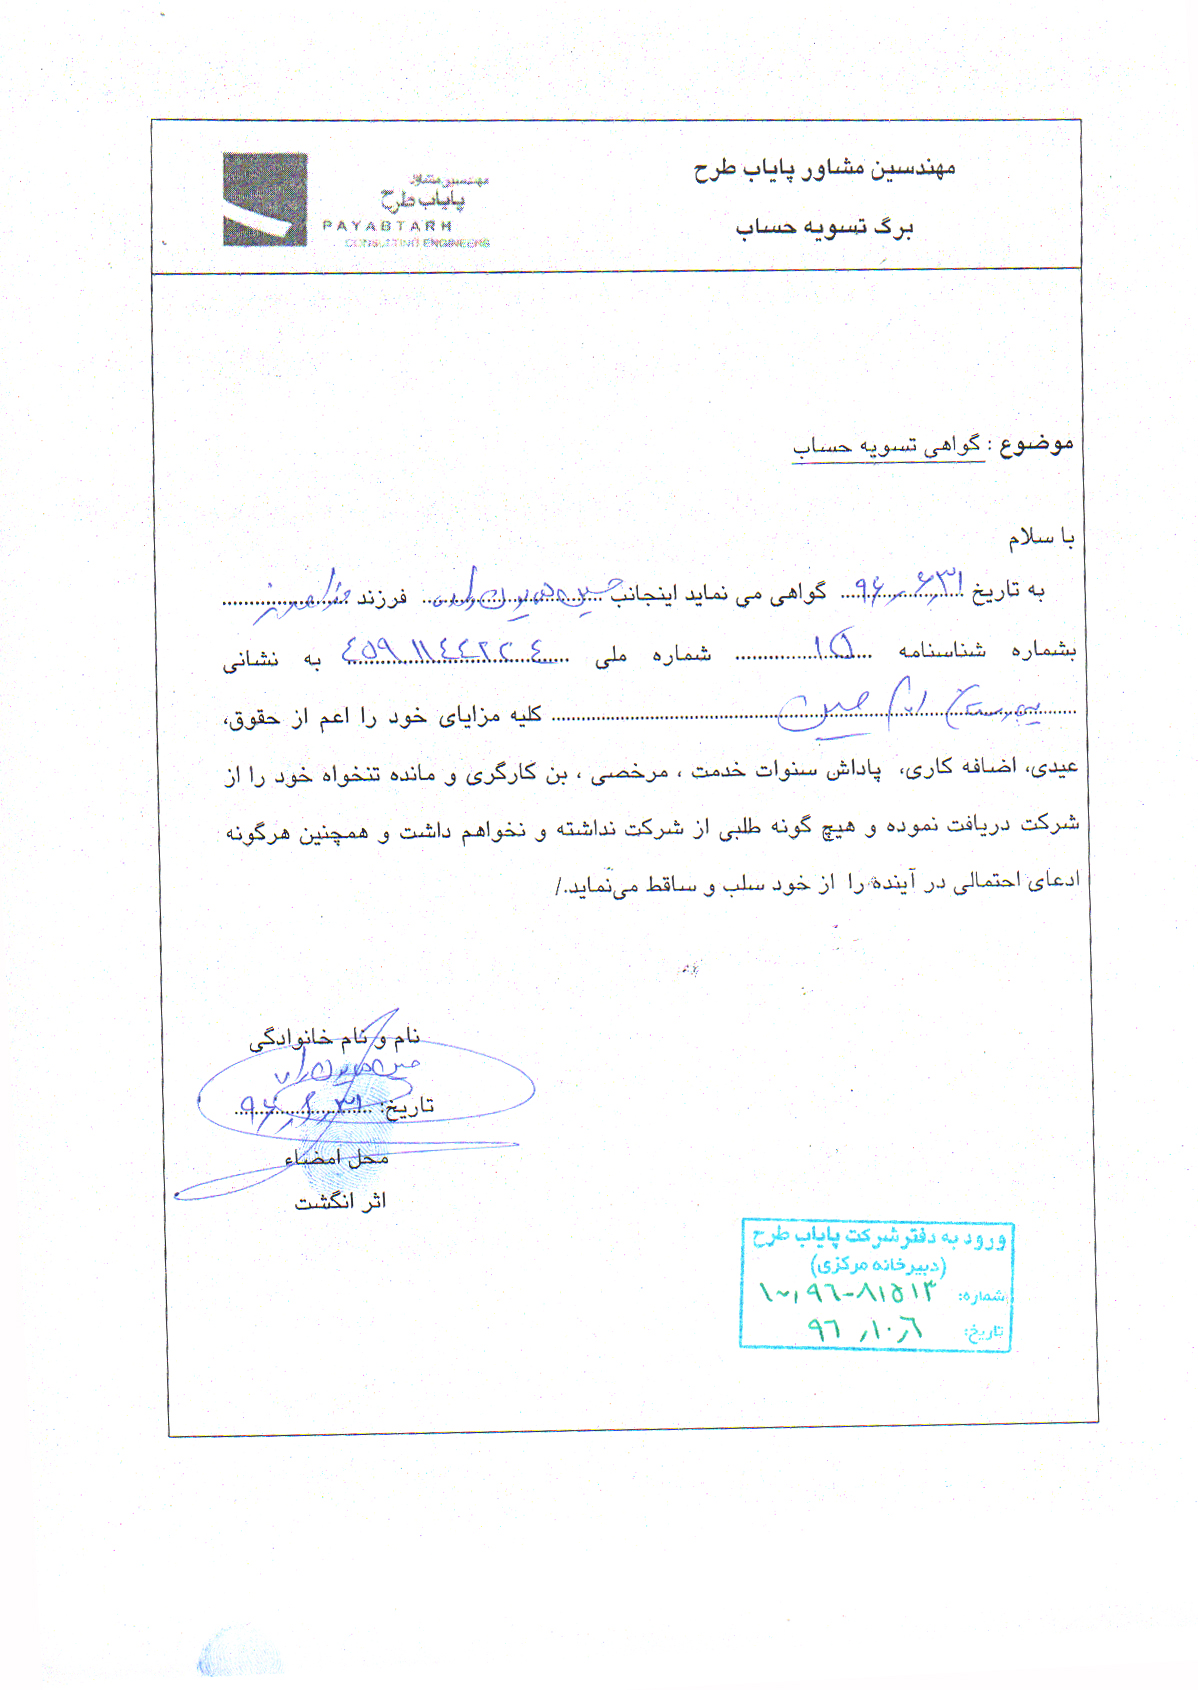 مهندسین مشاور پایاب طرح
برگ تسویه حساب
مهندسین مشاور
پایاب طرح
PAYABTARH
CONSULTING ENGINEERS
موضوع : گواهی تسویه حساب
با سلام
به تاریخ ۹۶٫۶٫۳۱ گواهی می نماید اینجانب حسین فرزند
بشماره شناسنامه شماره ملی به نشانی
امام حسین کلیه مزایای خود را اعم از حقوق،
عیدی، اضافه کاری، پاداش سنوات خدمت ، مرخصی ، بن کارگری و مانده تنخواه خود را از
شرکت دریافت نموده و هیچ گونه طلبی از شرکت نداشته و نخواهم داشت و همچنین هرگونه
ادعای احتمالی در آینده را از خود سلب و ساقط می‌نماید./
نام و نام خانوادگی
حسین
تاریخ: ۹۶٫۶٫۳۱
محل امضاء
اثر انگشت
ورود به دفتر شرکت پایاب طرح
(دبیرخانه مرکزی)
شماره: ۸۱۵۱۳-۹۶
تاریخ: ۹۶٫۱۰٫۶